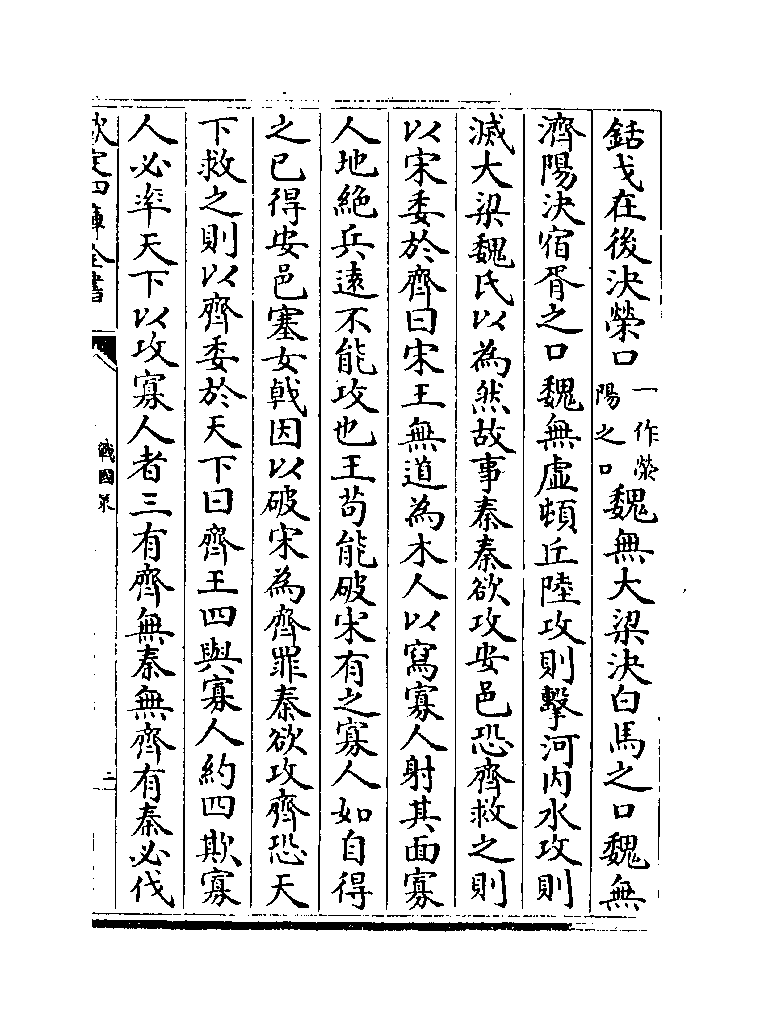 銛戈在後決榮口一作滎陽之口魏無大梁決白馬之口魏無
濟陽決宿胥之口魏無虛頓丘陸攻則擊河内水攻則
滅大梁魏氏以為然故事秦秦欲攻安邑恐齊救之則
以宋委於齊曰宋王無道為木人以寫寡人射其面寡
人地絶兵遠不能攻也王苟能破宋有之寡人如自得
之已得安邑塞女戟因以破宋為齊罪秦欲攻齊恐天
下救之則以齊委於天下曰齊王四與寡人約四欺寡
人必率天下以攻寡人者三有齊無秦無齊有秦必伐
欽定四庫全書
戰國策
二